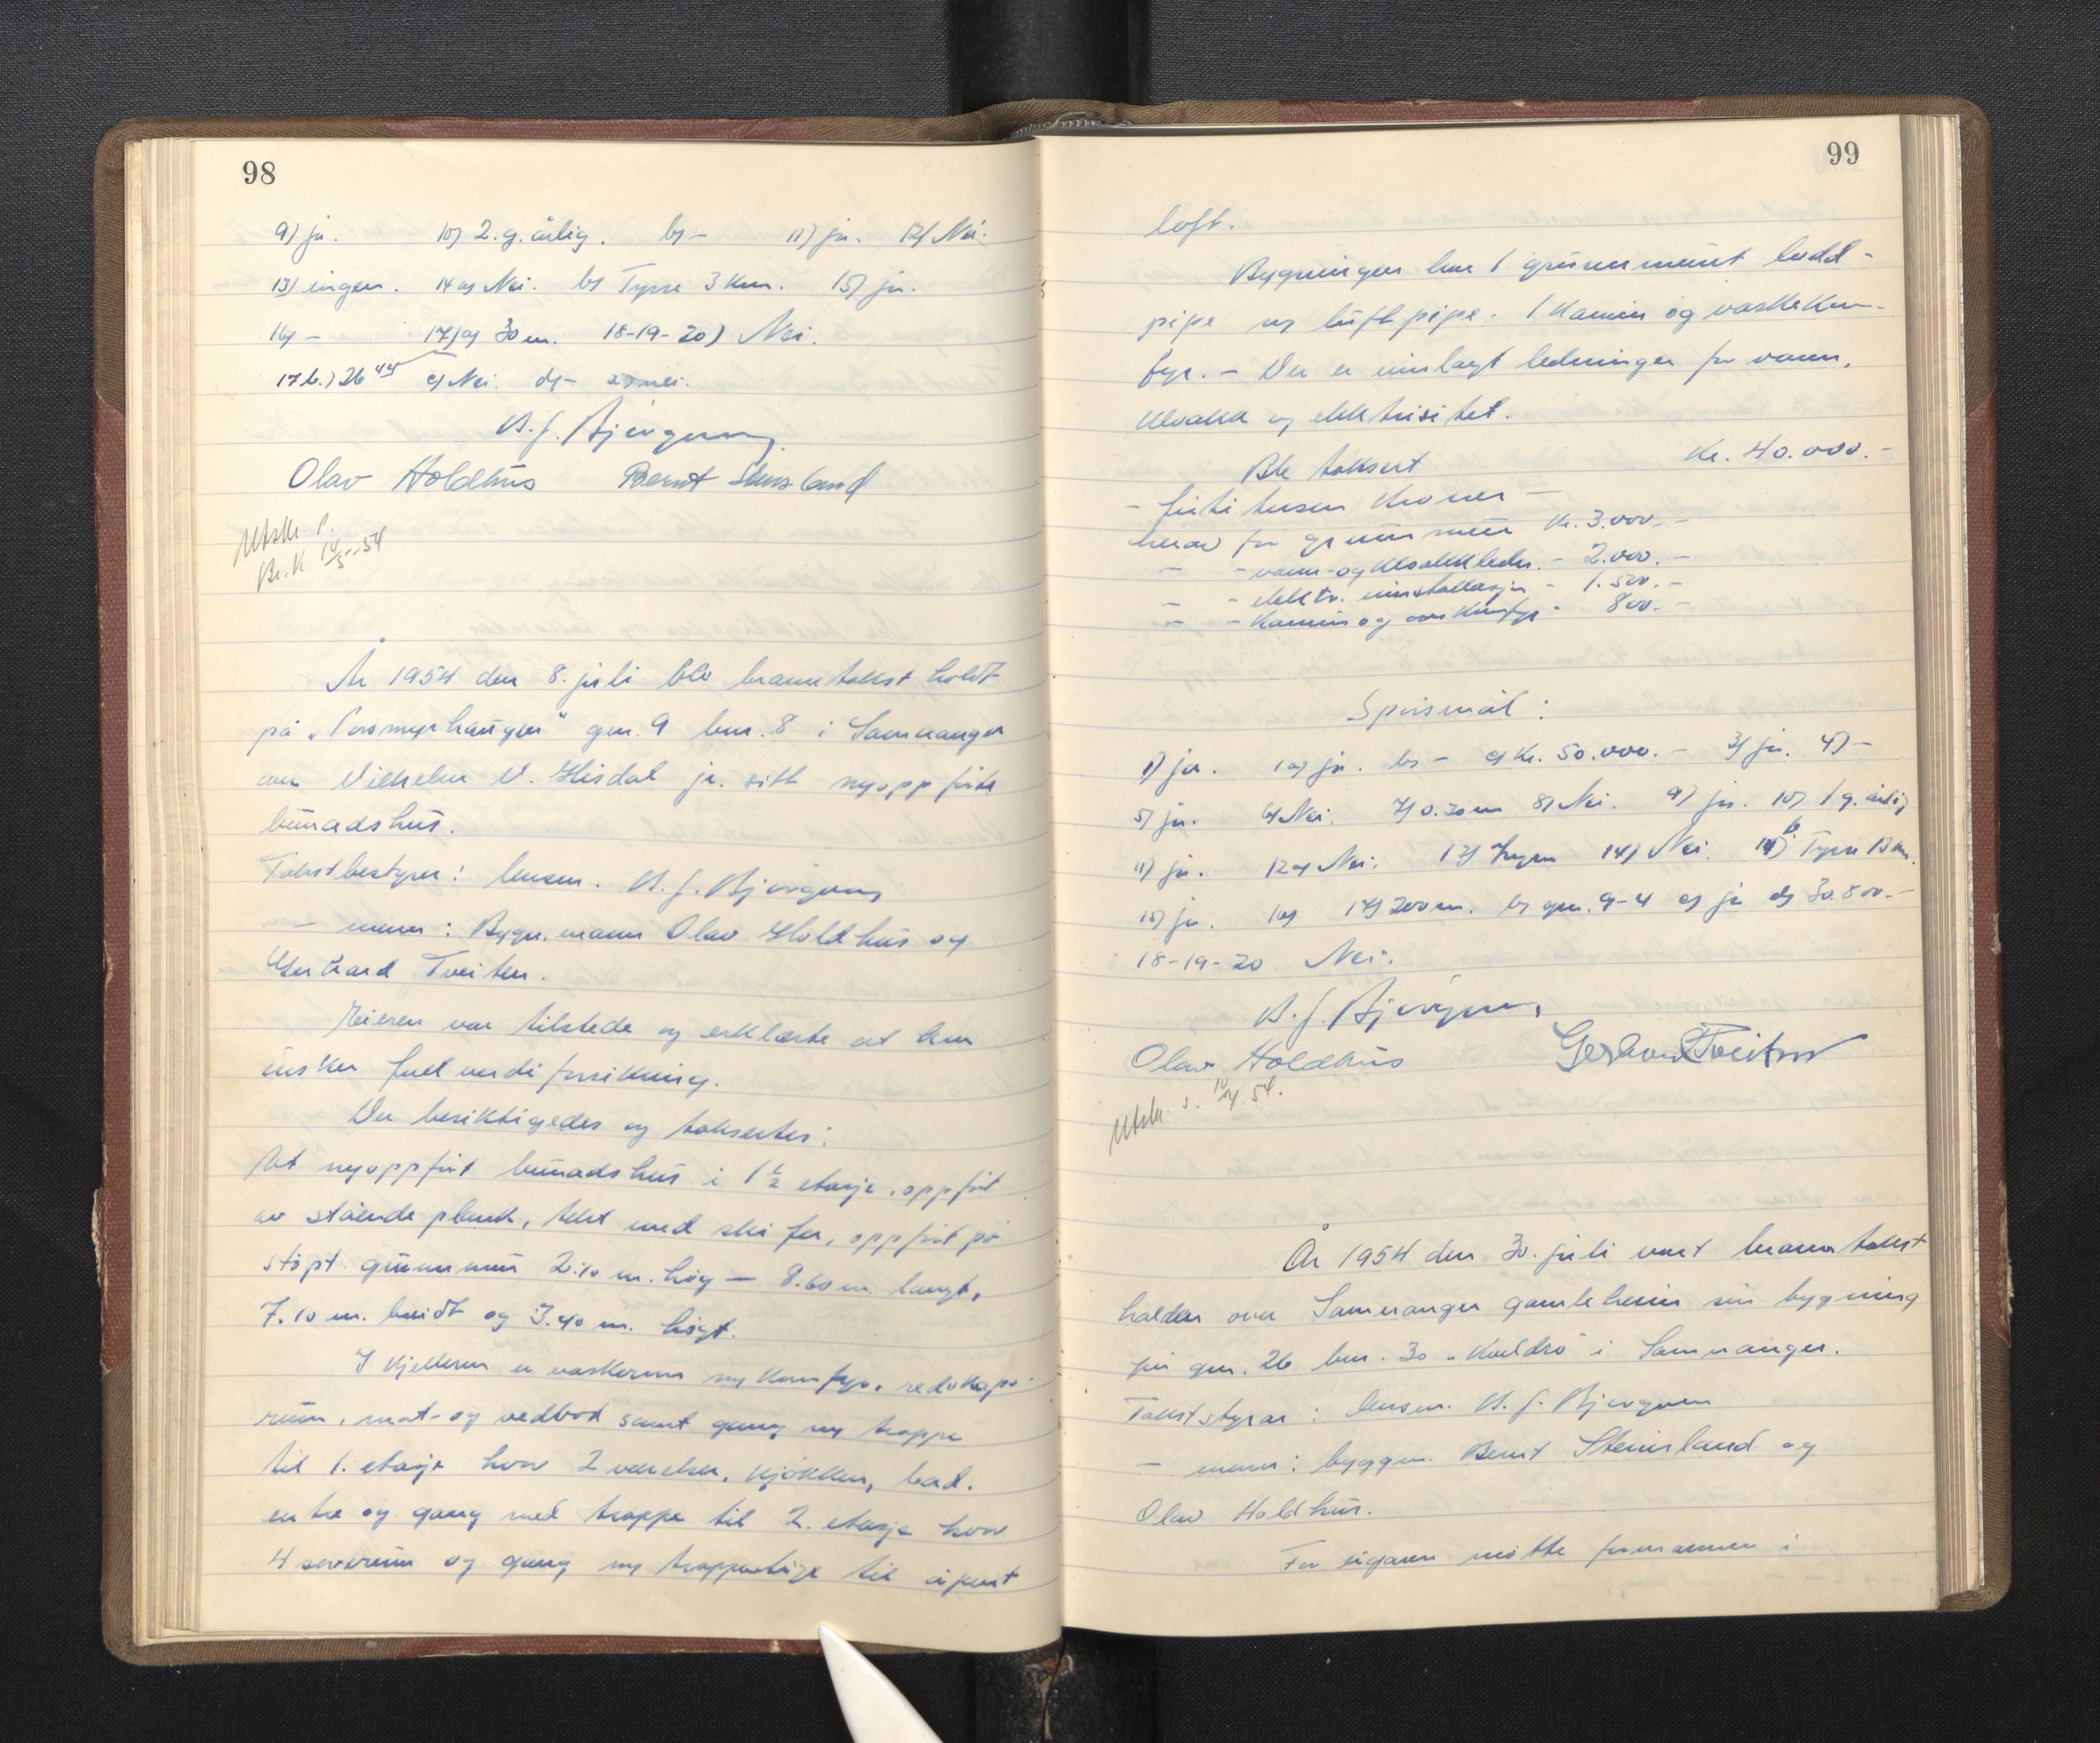 98
9) ja. 10) 2. g. årlig. b) - 11) ja. 12) Nei.
13) ingen. 14 a) Nei. b) Tysse 3 km. 15) ja.
16) - 17) a) 30 m. 18-19-20) Nei.
17 b.) 26 44 c) Nei. d) - e) nei.
Olav Holdhus Bernt Steinsland
Utskr. s.
Br.k. 14/5-54
År 1954 den 8. juli ble branntakst holdt
på "Porsmyrhaugen" gnr. 9 bnr. 8 i Samnanger
over Vilhelm V. Hisdal jr. sitt nyoppførte
bunadshus.
Takstbestyrer: lensm. N. J. Bjørgum
- menn: Bygn.mann Olav Holdhus og
Gerhard Tveiten.
Eieren var tilstede og erklærte at han
ønsker fullverdiforsikring.
Der besiktigedes og taksertes:
Et nyoppført bunadshus i 1 1/2 etasje, oppført
av stående plank, tekt med skifer, oppført på
støpt grunnmur 2.10 m. høg - 8.60 m. langt,
7.10 m. breidt og 3.40 m. høgt.
I kjelleren er vaskerom m/ komfyr, redskaps-
rum, mat- og vedbod samt gang m/ trapp
til 1. etasje hvor 2 værelser, kjøkken, bad,
entre og gang med trappe til 2. etasje hvor
4 soverum og gang m/ trappestige til åpent
99
loft.
Bygningen har 1 grunnmurt ledd-
pipe m/ luftpipe. 1 kamin og vaskekom-
fyr. - Der er innlagt ledninger for vann,
kloakk og elektrisitet.
Ble taksert Kr. 40.000.-
- førti tusen kroner -
herav for grunnmur Kr. 3.000.-
- - vann- og kloakkledn. - 2.000.-
- - elektr. innstallasjon - 1.500.-
- - kamin og vaskekomfyr - 800.-
Spørsmål:
1) ja. 1a) ja. b) - c) Kr. 50.000.- 3) ja. 4) -
5) ja. 6) Nei. 7) 0.30 m 8) Nei. 9) ja. 10) 1 g. årlig
11) ja. 12 a) Nei. 13) Ingen 14) Nei. 14) b Tysse 13 km.
15) ja. 16) 17) 200 m. b) gnr. 9-4 c) ja d) 30.800.-
18-19-20 Nei.
N. J. Bjørgum
Olav Holdhus Gerhard Tveiten
Utskr. s. 54.
År 1954 den 30. juli vart branntakst
halden over Samnanger gamleheim sin bygning
på gnr. 26 bnr. 30 "Kvildro" i Samnanger.
Takststyrar: lensm. N. J. Bjørgum
- menn: byggm. Bernt Steinsland og
Olav Holdhus.
For eigaren møtte formannen i